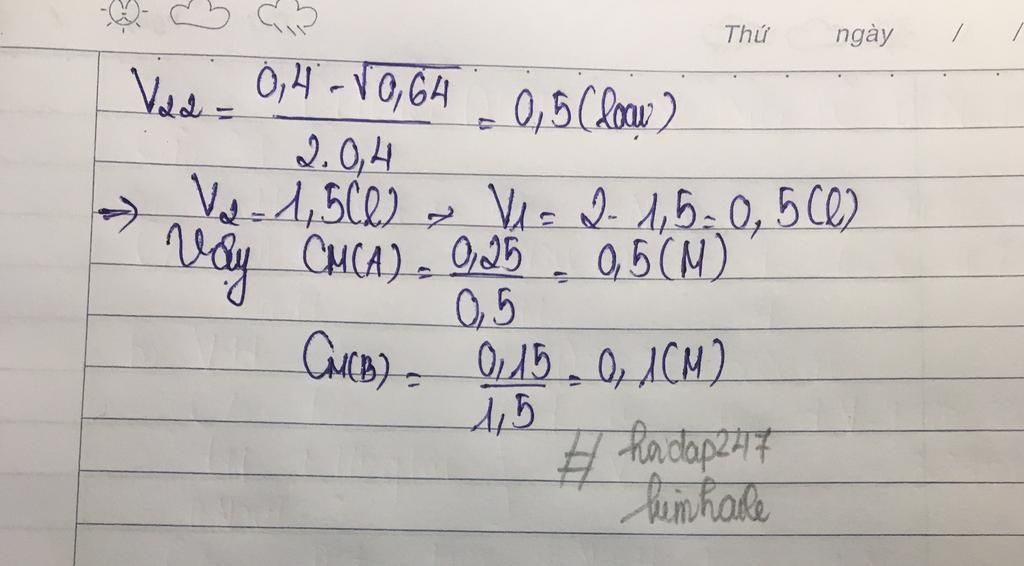 Thứ ngày / /
V₂₂ = (0,4 - √0,64) / (2.0,4) = 0,5 (loại)
=> V₂ = 1,5(l) → V₁ = 2 - 1,5 = 0,5(l)
Vậy CM(A) = 0,25 / 0,5 = 0,5(M)
CM(B) = 0,15 / 1,5 = 0,1(M)
# hoidap247